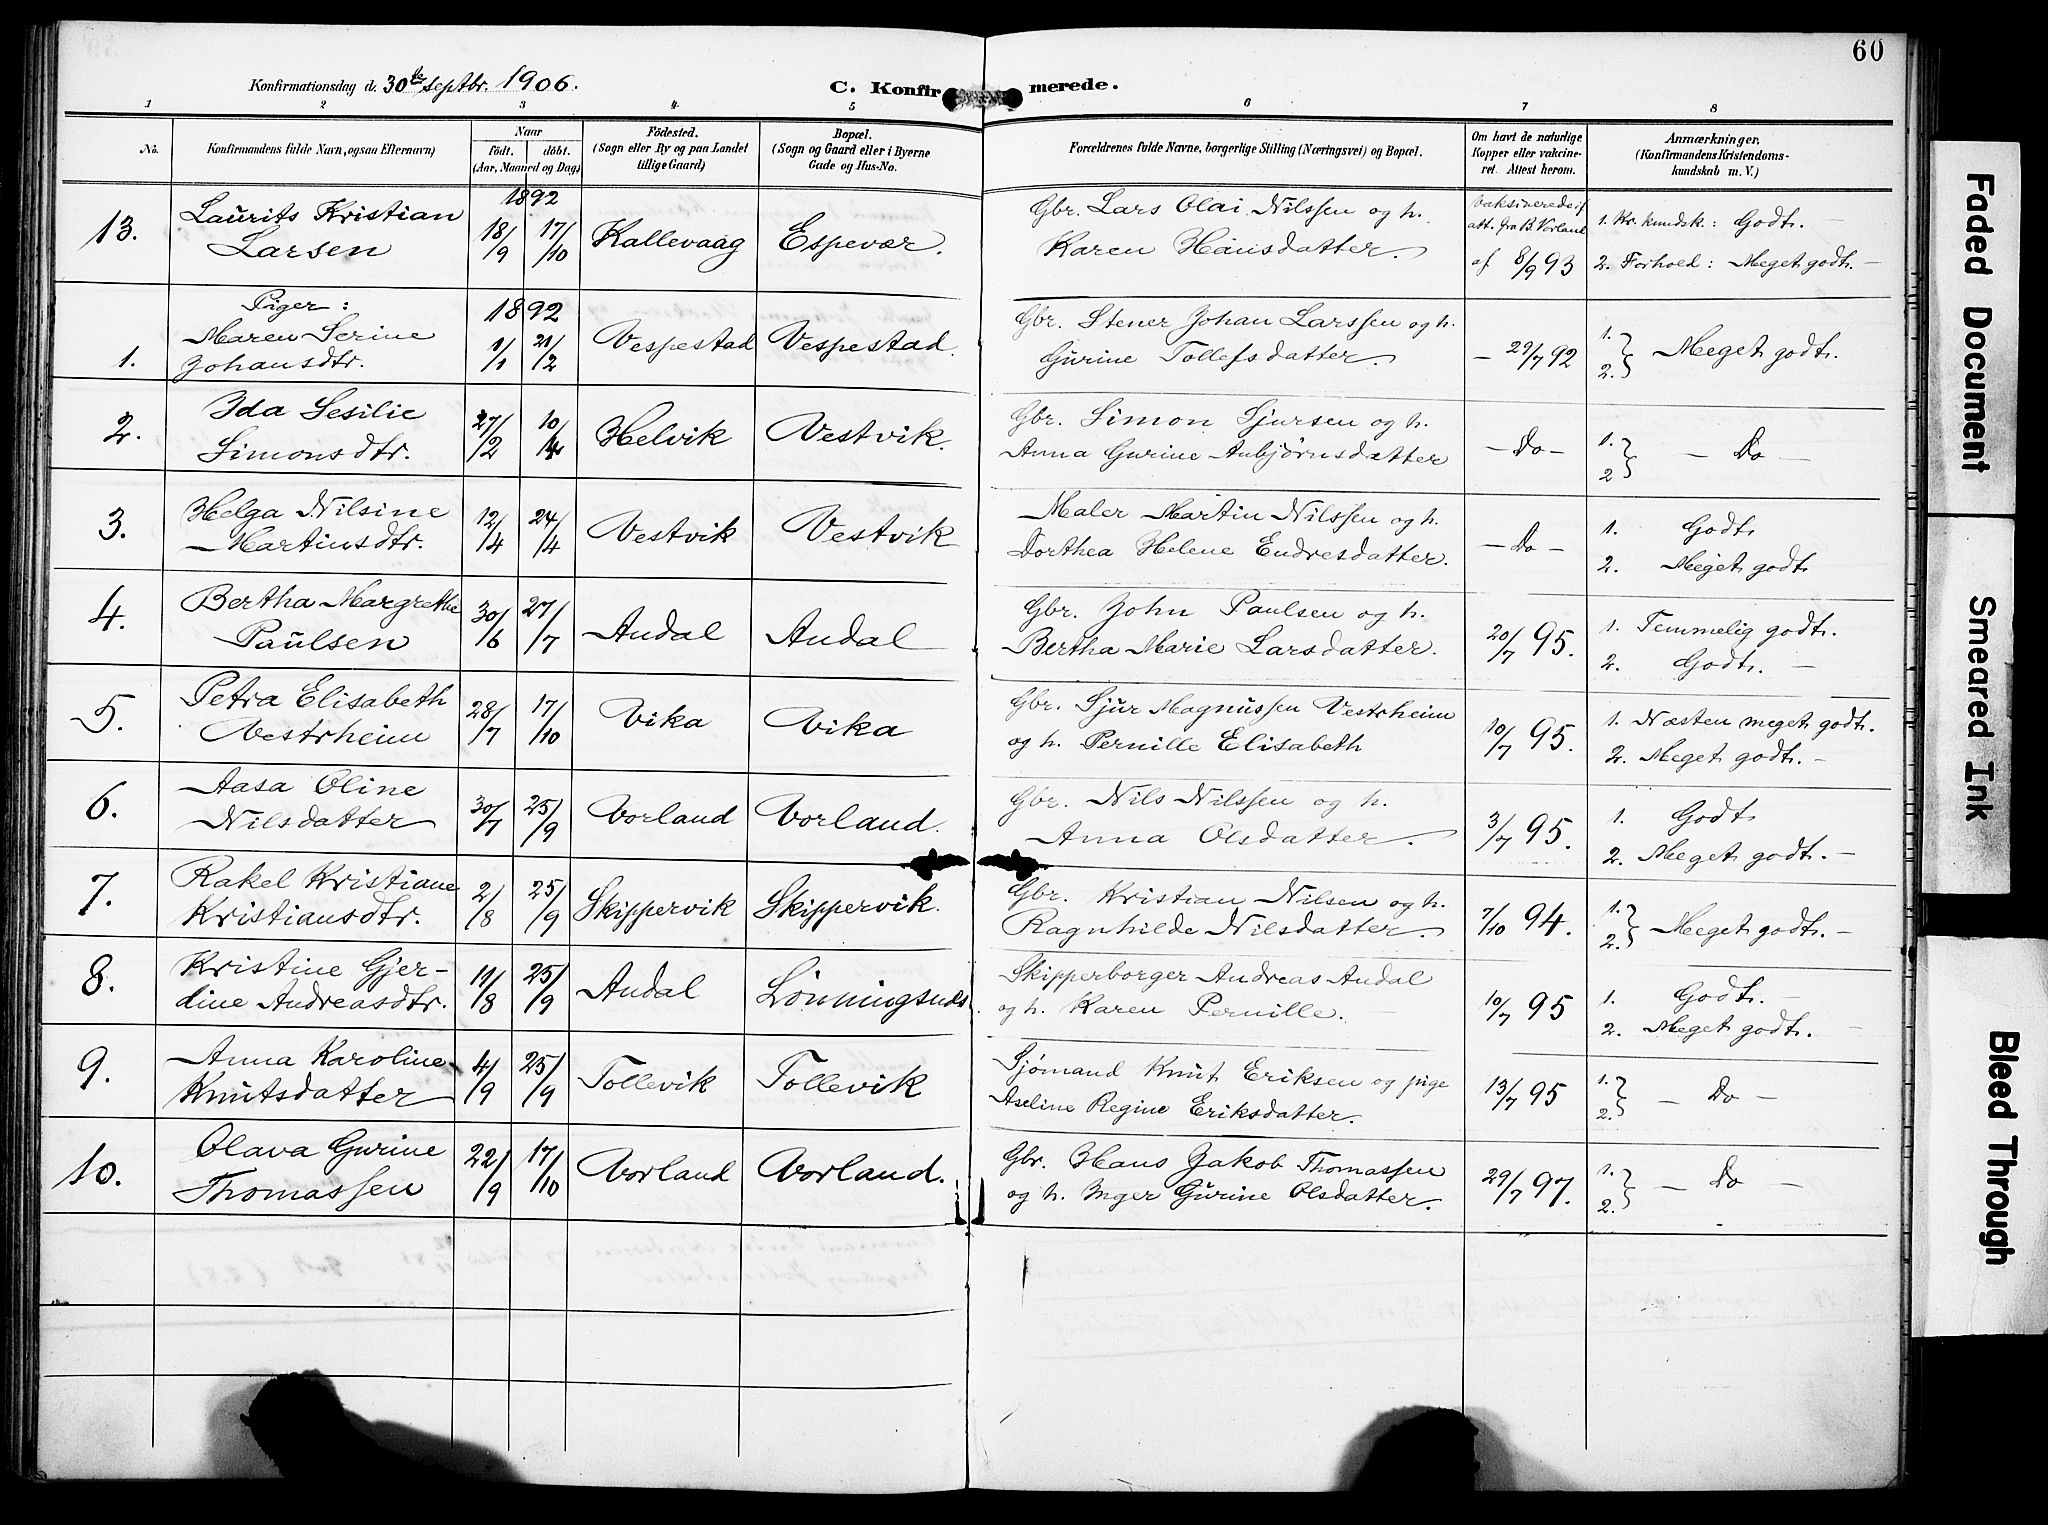 60
Konfirmationsdag d. 30te septbr. 1906. C. Konfirmerede.
1 2 3 4 5 6 7 8
No. Konfirmandens fulde Navn, ogsaa Efternavn) Naar födt. döbt. (Aar, Maaned og Dag) Födested. (Sogn eller By og paa Landet tillige Gaard) Bopæl. (Sogn og Gaard eller i Byerne Gade og Hus-No. Forældrenes fulde Navne, borgerlige Stilling (Næringsvei) og Bopæl. Om havt de naturlige Kopper eller vakcineret. Attest herom. Anmærkninger. (Konfirmandens Kristendomskundskab m. V.)
1892
13. Laurits Kristian Larsen 18/9 17/10 Kallevaag Espevær. Gbr. Lars Olai Nilssen og h. Karen Hansdatter. Vaksinerede if att. fra B. Vorland af 8/9 93 1. Kr. kundsk.: Godt. – 2. Forhold: Meget godt. –
Piger: 1892
1. Maren Serine Johansdtr. 1/1 21/2 Vespestad Vespestad. Gbr. Stener Johan Larssen og h. Gurine Tollefsdatter. – 29/7 92 1. 2. } Meget godt.
2. Ida Sesilie Simonsdtr. 27/2 10/4 Helvik Vestvik. Gbr. Simon Sjursen og h. Anna Gurine Anbjørnsdatter – Do – 1. 2 } – Do –
3. Helga Nilsine Martinsdtr. 12/4 24/4 Vestvik Vestvik Maler Martin Nilssen og h. Dorthea Helene Endresdatter. – Do – 1. Godt 2. Meget godt
4. Bertha Margrethe Paulsen 30/6 27/7 Andal Andal Gbr. John Paulsen og h. Bertha Marie Larsdatter. 20/7 95. 1. Temmelig godt. 2. Godt. –
5. Petra Elisabeth Vestrheim 28/7 17/10 Vika Vika Gbr. Sjur Magnussen Vestrheim og h. Pernille Elisabeth 10/7 95. 1. Næsten meget godt. 2. Meget godt. –
6. Aasa Oline Nilsdatter 30/7 25/9 Vorland Vorland. Gbr. Nils Nilssen og h. Anna Olsdatter. 3/7 95. 1. Godt 2. Meget godt. –
7. Rakel Kristiane Kristiansdtr. 2/8 25/9 Skippervik Skippervik. Gbr. Kristian Nilsen og h. Ragnhilde Nilsdatter. 7/10 94. 1. 2. } Meget godt. –
8. Kristine Gjerdine Andreasdtr. 11/8 25/9 Andal Lönningsnds. Skipperborger Andreas Andal og h. Karen Pernille. – 10/7 95 1. Godt. – 2. Meget godt. –
9. Anna Karoline Knutsdatter 4/9 25/9 Tollevik Tollevik Sjømand Knut Eriksen og pige Aseline Regine Eriksdatter. 13/7 95 1. 2. } – Do –
10. Olava Gurine Thomassen 22/9 17/10 Vorland Vorland. Gbr. Hans Jakob Thomassen og h. Inger Gurine Olsdatter. 29/7 97. 1. 2. } – Do –
Faded Document
Smeared Ink
Bleed Through